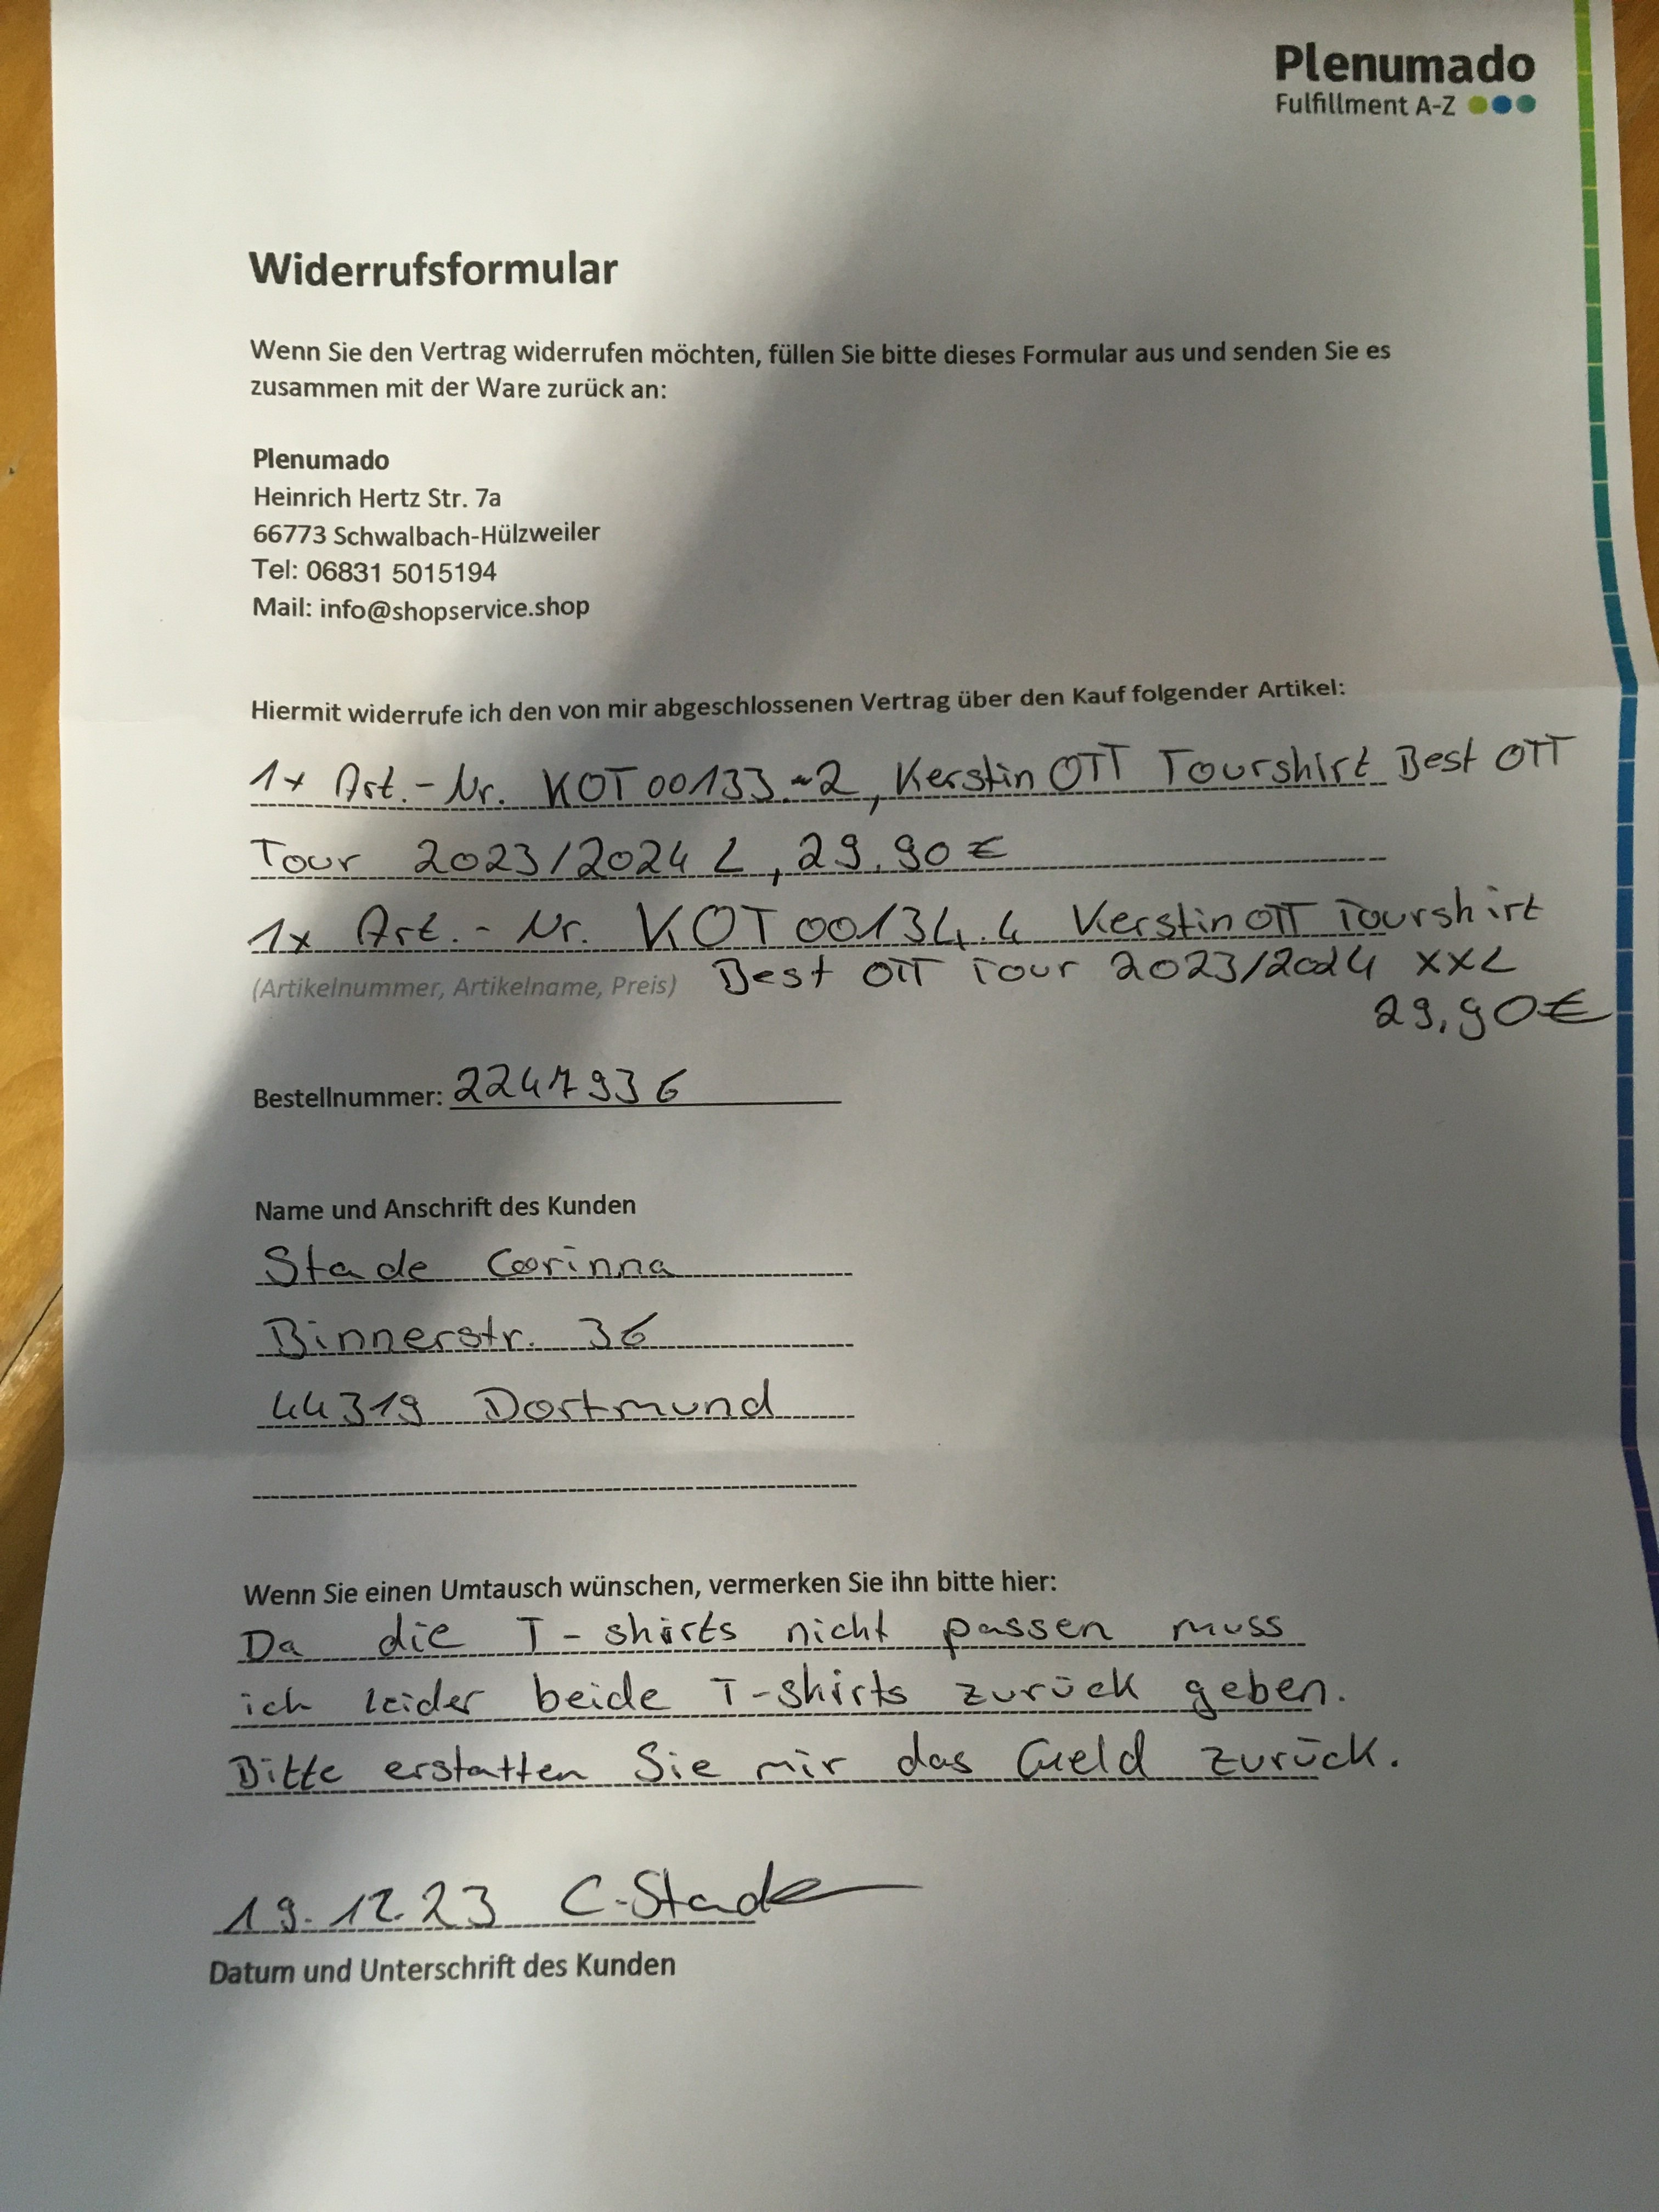 Plenumado
Fulfillment A-Z
Widerrufsformular
Wenn Sie den Vertrag widerrufen möchten, füllen Sie bitte dieses Formular aus und senden Sie es
zusammen mit der Ware zurück an:
Plenumado
Heinrich Hertz Str. 7a
66773 Schwalbach-Hülzweiler
Tel: 06831 5015194
Mail: info@shopservice.shop
Hiermit widerrufe ich den von mir abgeschlossenen Vertrag über den Kauf folgender Artikel:
1x Art.-Nr. KOT00133-2, Kerstin OTT Tourshirt Best OTT
Tour 2023/2024 L, 29.90€
1x Art.-Nr. KOT00134.4 Kerstin OTT Tourshirt
(Artikelnummer, Artikelname, Preis) Best OTT Tour 2023/2024 XXL
29,90€
Bestellnummer: 2247936
Name und Anschrift des Kunden
Stade Corinna
Binnerstr. 36
44319 Dortmund
Wenn Sie einen Umtausch wünschen, vermerken Sie ihn bitte hier:
Da die T-shirts nicht passen muss
ich leider beide T-shirts zurück geben.
Bitte erstatten Sie mir das Geld zurück.
19.12.23 C.Stade
Datum und Unterschrift des Kunden